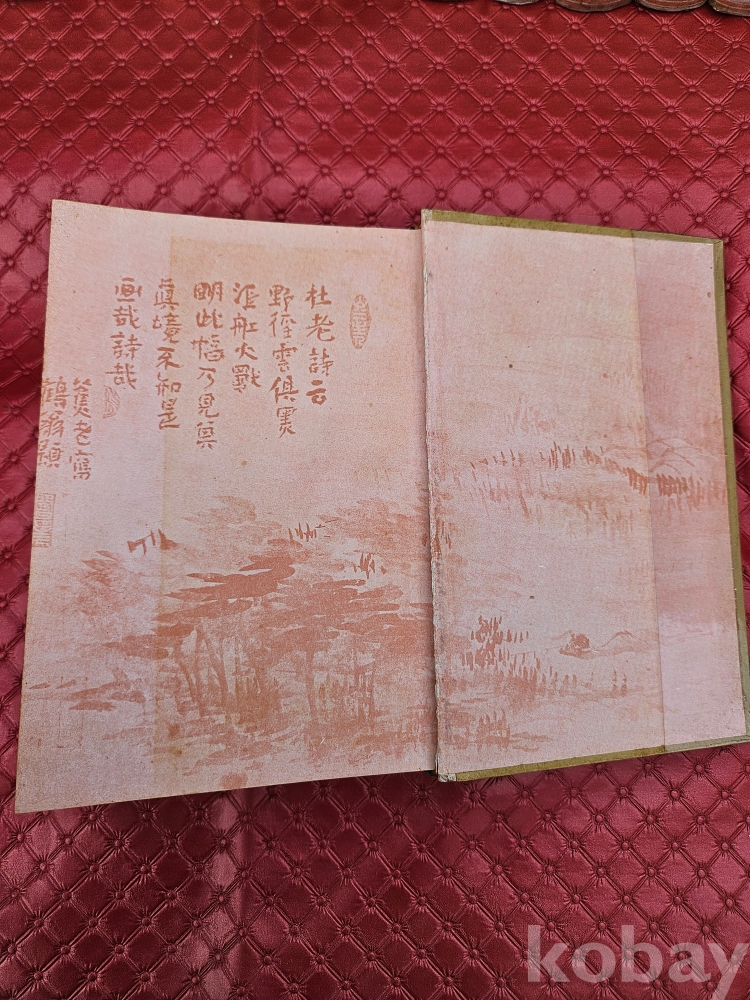 杜老詩云
野徑雲俱黑
江舡火獨
明此幅乃見其
眞境不知是
画哉詩哉
老寫
鶴
kobay